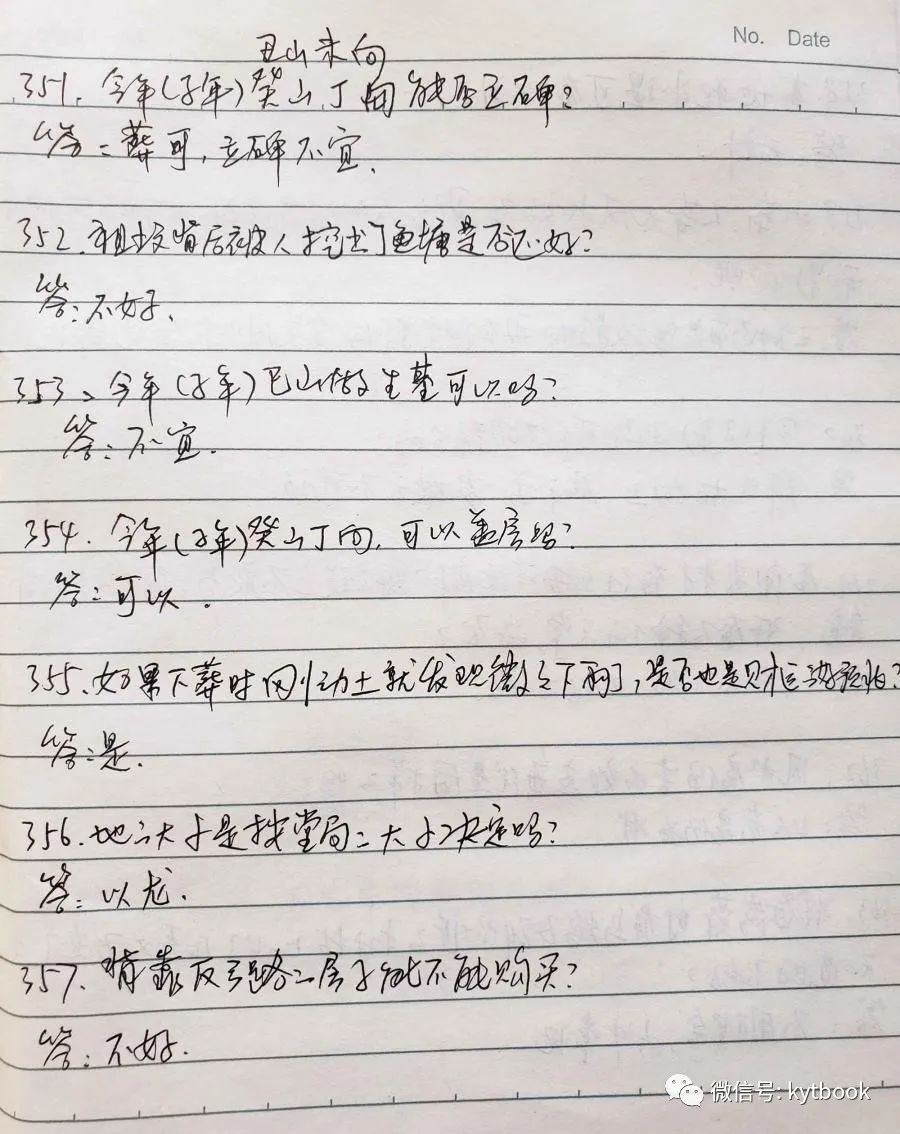 No. Date
丑山未向
351. 今年(子年)癸山丁向能否立碑?
答:葬可,立碑不宜.
352. 祖坟背后被人挖出了鱼塘是否还好?
答:不好.
353、今年(子年)巴山做生基可以吗?
答:不宜.
354. 今年(子年)癸山丁向,可以盖房吗?
答:可以.
355. 如果下葬时刚动土就发现微之下雨了,是否也是财运
答:是.
356. 地之大小是找堂局之大小决定吗?
答:以龙.
357. 背靠反弓路之房子能不能购买?
答:不好.
微信号: kytbook